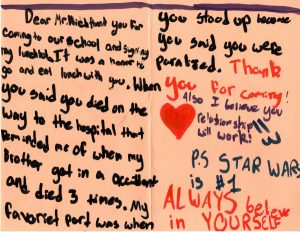 Dear Mr. Nick thank you for
coming to our school and signing
my lunchbox. It was a honor to
go and eat lunch with you. When
you said you died on the
way to the hospital that
reminded me of when my
brother got in a accident
and died 3 times. My
favoriet part was when
you stood up because
you said you were
paralized. Thank
you for coming!
Also I believe you
relationship
will work!
P.S STAR WARS
is #1
ALWAYS believe
in YOURSELF